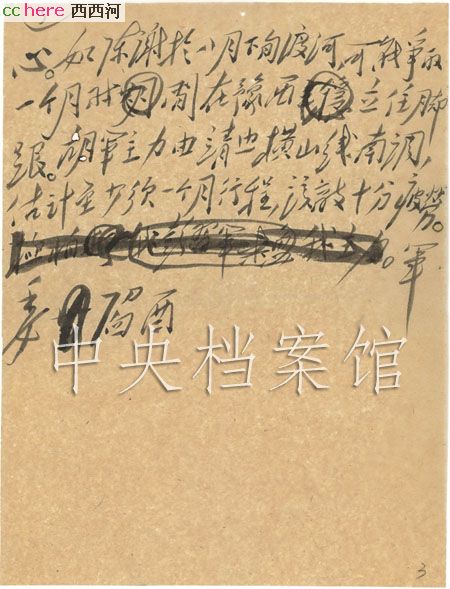 cchere 西西河
心。如陈谢於八月下旬渡河,可战争取
一个月时间,在豫西立住脚
跟。胡军主力由清边横山线南调,
估计至少须一个月行程,该敌十分疲劳。
军
委 屑酉
中央档案馆
3